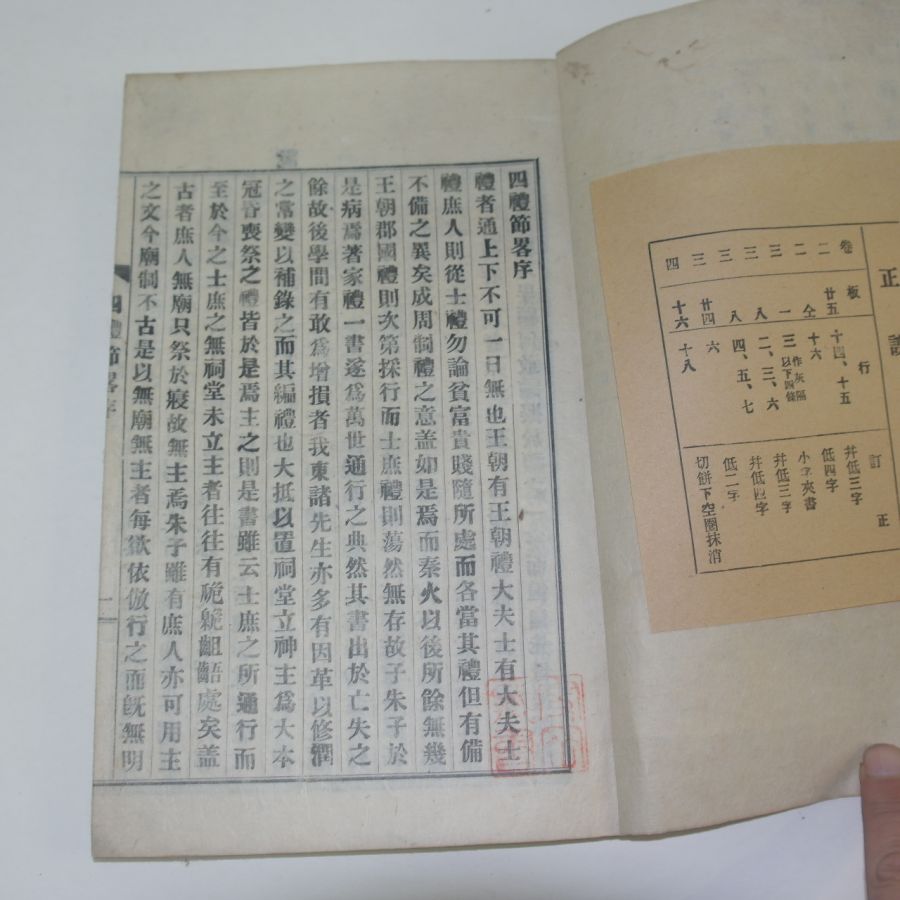 正誤
卷 板 行 訂正
二 廿五 十四、十五 幷低三字
二 仝 十六 低四字
三 一 三 作灰隔以下四條 小字夾書
三 八 二、三、六 幷低三字
三 八 四、五、七 幷低四字
三 廿四 六 低二字
四 十六 十八 切餠下空圈抹消
四禮節畧序
禮者通上下不可一日無也王朝有王朝禮大夫士有大夫士
禮庶人則從士禮勿論貧富貴賤隨所處而各當其禮但有備
不備之異矣成周制禮之意盖如是焉而秦火以後所餘無幾
王朝郡國禮則次第採行而士庶禮則蕩然無存故子朱子於
是病焉著家禮一書遂爲萬世通行之典然其書出於亡失之
餘故後學間有敢爲增損者我東諸先生亦多有因革以修潤
之常變以補錄之而其編禮也大抵以置祠堂立神主爲大本
冠昏喪祭之禮皆於是焉主之則是書雖云士庶之所通行而
至於今之士庶之無祠堂未立主者往往有臲卼齟齬處矣盖
古者庶人無廟只祭於寢故無主焉朱子雖有庶人亦可用主
之文今廟制不古是以無廟無主者每欲依倣行之而旣無明
四禮節畧序
一